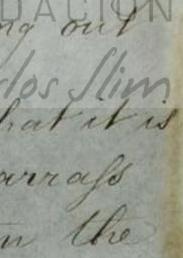 DACIÓN
ng out
los Slim
hat it is
arrass
the